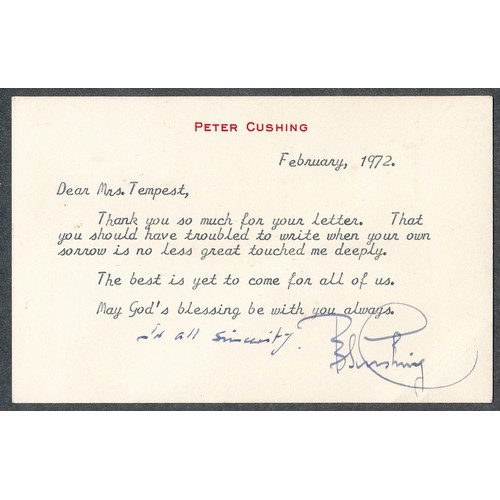 PETER CUSHING
February, 1972.
Dear Mrs. Tempest,
Thank you so much for your letter. That
you should have troubled to write when your own
sorrow is no less great touched me deeply.
The best is yet to come for all of us.
May God's blessing be with you always.
In all sincerity.
Peter Cushing